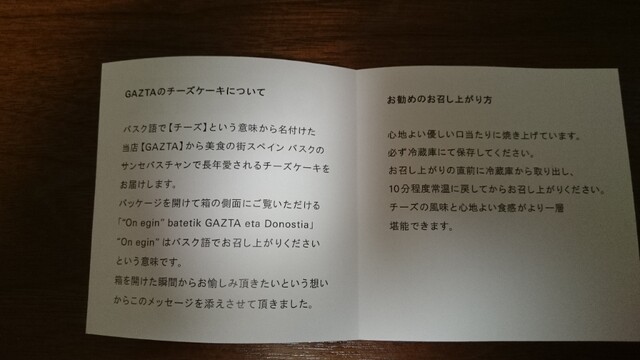 GAZTAのチーズケーキについて
バスク語で【チーズ】という意味から名付けた
当店【GAZTA】から美食の街スペイン バスクの
サンセバスチャンで長年愛されるチーズケーキを
お届けします。
パッケージを開けて箱の側面にご覧いただける
「“On egin” batetik GAZTA eta Donostia」
“On egin” はバスク語でお召し上がりください
という意味です。
箱を開けた瞬間からお愉しみ頂きたいという想い
からこのメッセージを添えさせて頂きました。
お勧めのお召し上がり方
心地よい優しい口当たりに焼き上げています。
必ず冷蔵庫にて保存してください。
お召し上がりの直前に冷蔵庫から取り出し、
10分程度常温に戻してからお召し上がりください。
チーズの風味と心地よい食感がより一層
堪能できます。